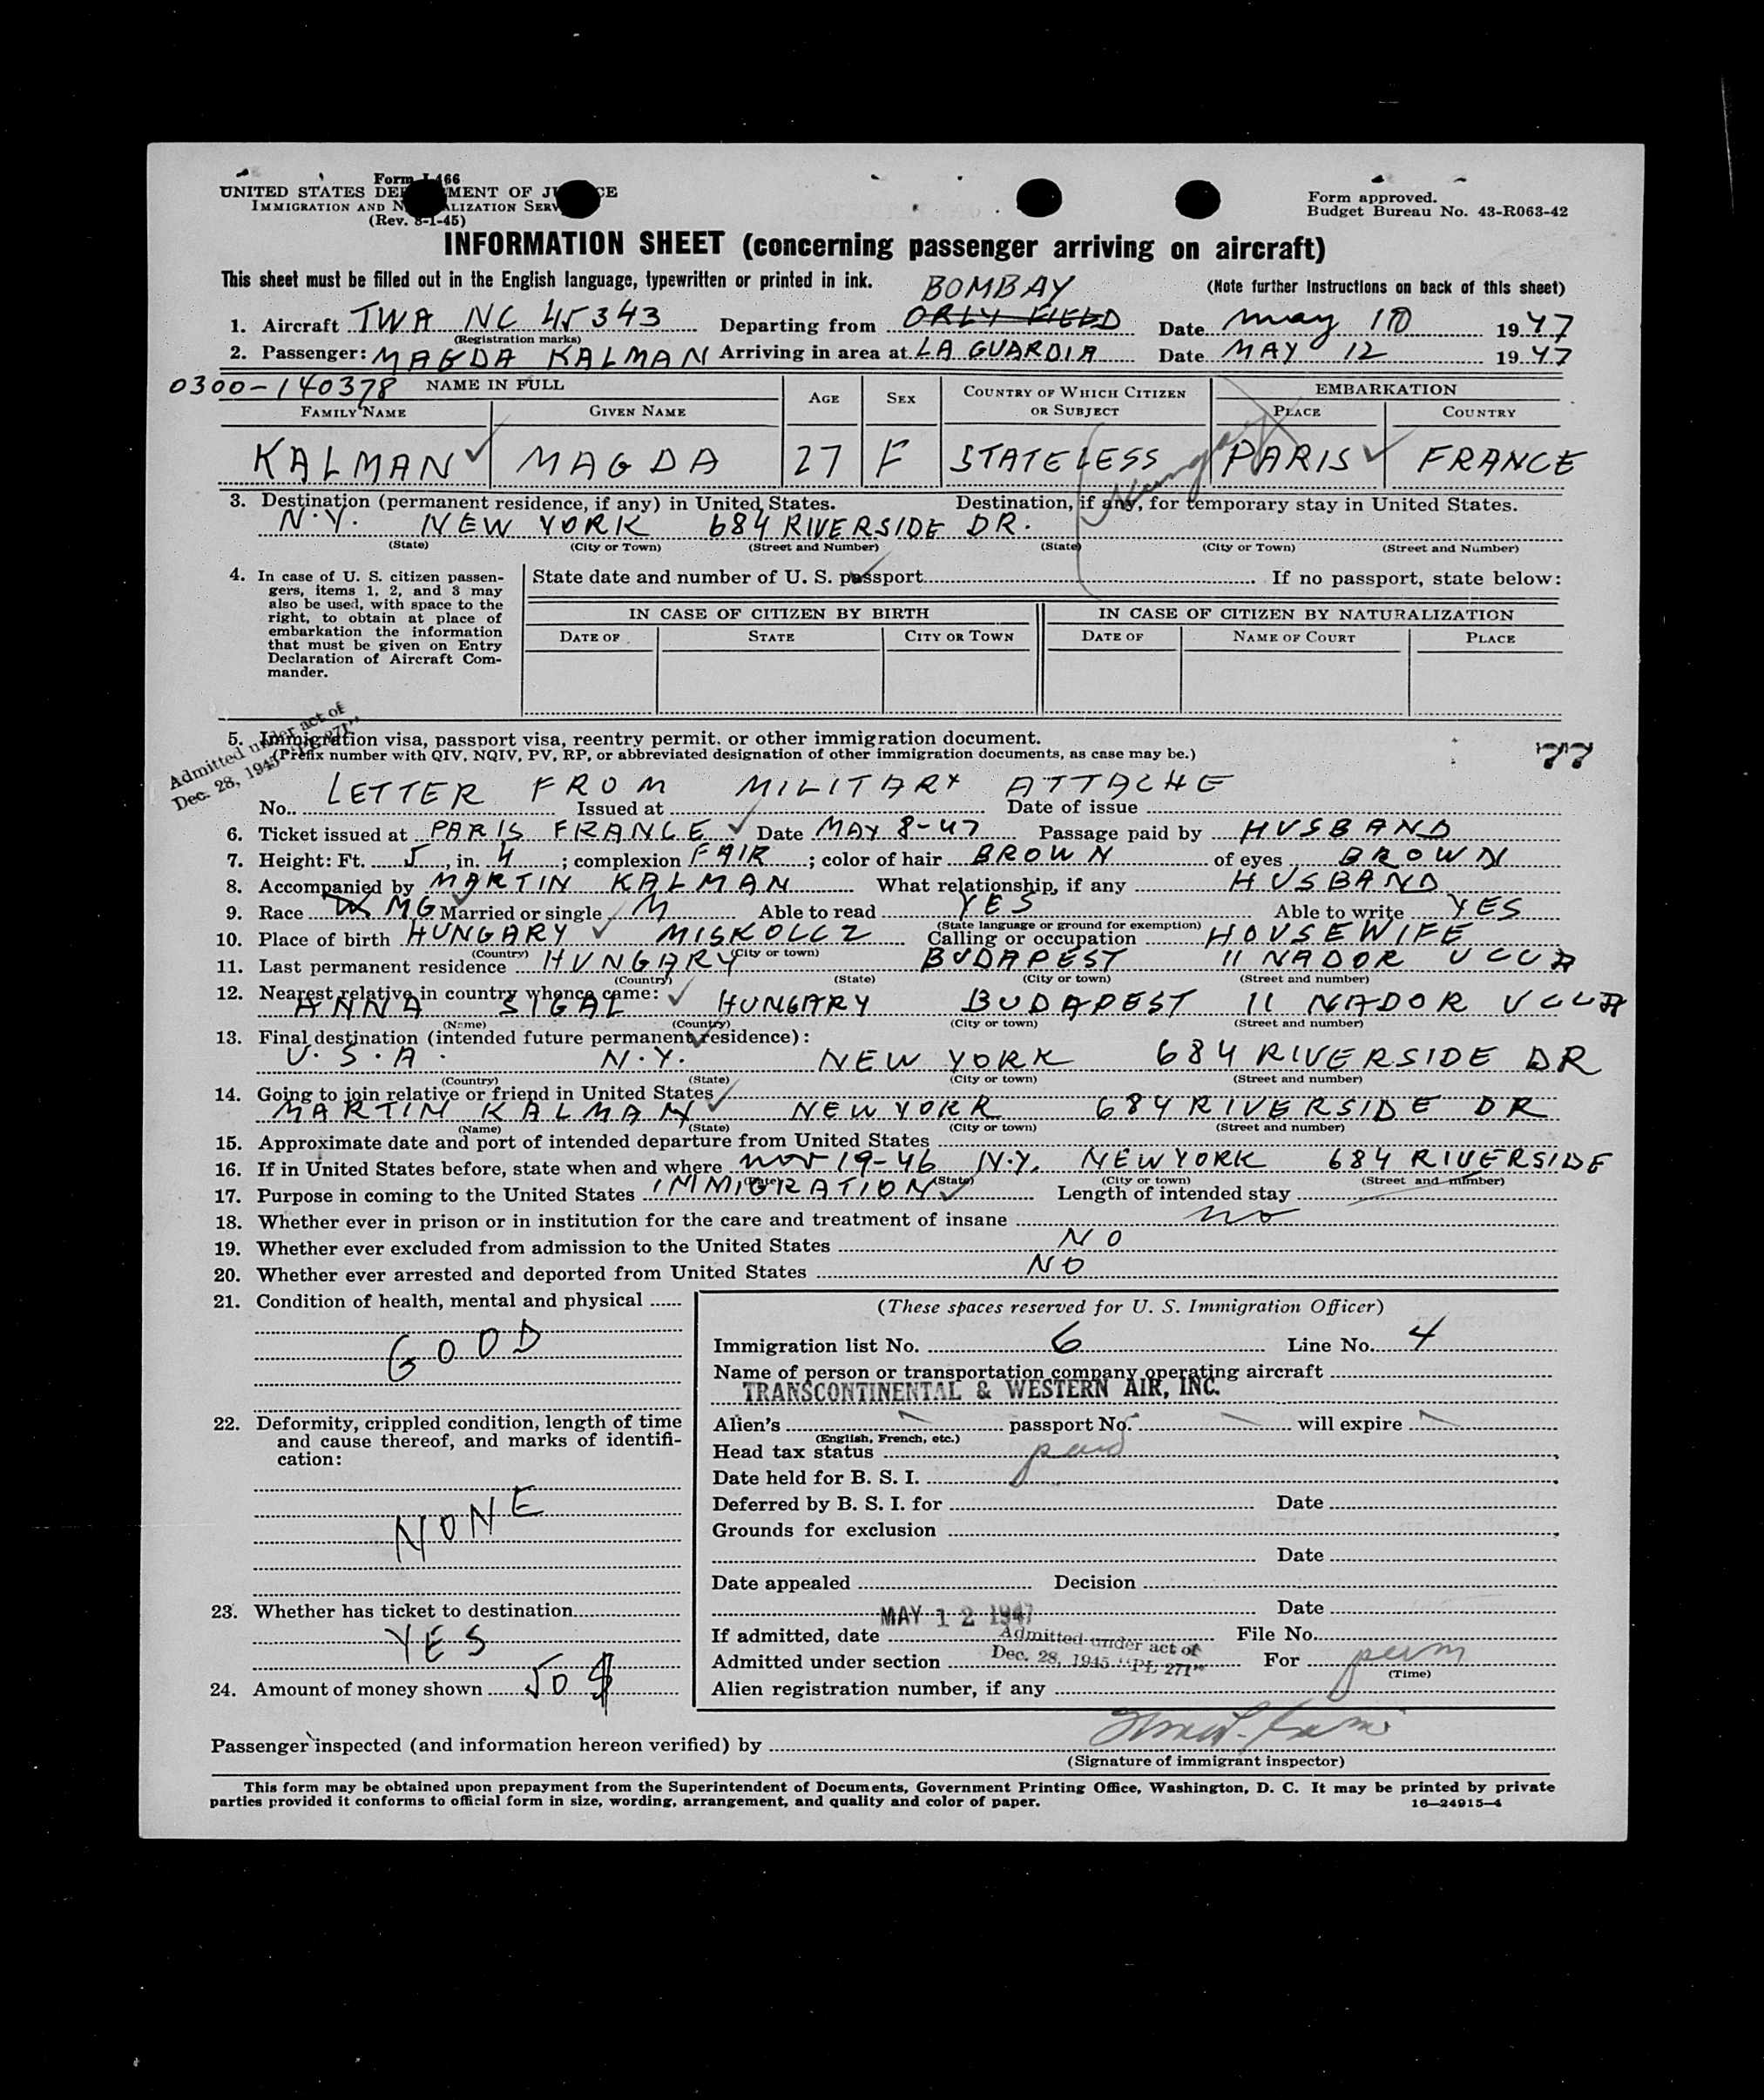 Form I-466
UNITED STATES DEPARTMENT OF JUSTICE
IMMIGRATION AND NATURALIZATION SERVICE
(Rev. 8-1-45)
Form approved.
Budget Bureau No. 43-R063-42
INFORMATION SHEET (concerning passenger arriving on aircraft)
This sheet must be filled out in the English language, typewritten or printed in ink.
(Note further instructions on back of this sheet)
BOMBAY
1. Aircraft TWA NC 45343 Departing from ORLY FIELD Date May 10 1947
(Registration marks)
2. Passenger: MAGDA KALMAN Arriving in area at LA GUARDIA Date MAY 12 1947
0300-140378 NAME IN FULL AGE SEX COUNTRY OF WHICH CITIZEN OR SUBJECT EMBARKATION
FAMILY NAME GIVEN NAME PLACE COUNTRY
KALMAN MAGDA 27 F STATELESS PARIS FRANCE
3. Destination (permanent residence, if any) in United States. Destination, if any, for temporary stay in United States.
N.Y. NEW YORK 684 RIVERSIDE DR.
(State) (City or Town) (Street and Number) (State) (City or Town) (Street and Number)
4. In case of U. S. citizen passen-
gers, items 1, 2, and 3 may
also be used, with space to the
right, to obtain at place of
embarkation the information
that must be given on Entry
Declaration of Aircraft Com-
mander.
State date and number of U. S. passport If no passport, state below:
IN CASE OF CITIZEN BY BIRTH IN CASE OF CITIZEN BY NATURALIZATION
DATE OF STATE CITY OR TOWN DATE OF NAME OF COURT PLACE
Admitted under act of
Dec. 28, 1945 "PL 271"
5. Immigration visa, passport visa, reentry permit, or other immigration document.
(Prefix number with QIV, NQIV, PV, RP, or abbreviated designation of other immigration documents, as case may be.)
77
LETTER FROM MILITARY ATTACHE
No. Issued at Date of issue
6. Ticket issued at PARIS FRANCE Date MAY 8-47 Passage paid by HUSBAND
7. Height: Ft. 5, in. 4; complexion FAIR; color of hair BROWN of eyes BROWN
8. Accompanied by MARTIN KALMAN What relationship, if any HUSBAND
9. Race MG Married or single M Able to read YES Able to write YES
(State language or ground for exemption)
10. Place of birth HUNGARY MISKOLCZ Calling or occupation HOUSEWIFE
(Country) (City or town)
11. Last permanent residence HUNGARY BUDAPEST 11 NADOR UCCA
(Country) (State) (City or town) (Street and number)
12. Nearest relative in country whence came:
ANNA SIGAL HUNGARY BUDAPEST 11 NADOR UCCA
(Name) (Country) (City or town) (Street and number)
13. Final destination (intended future permanent residence):
U.S.A. N.Y. NEW YORK 684 RIVERSIDE DR
(Country) (State) (City or town) (Street and number)
14. Going to join relative or friend in United States
MARTIN KALMAN NEW YORK 684 RIVERSIDE DR
(Name) (State) (City or town) (Street and number)
15. Approximate date and port of intended departure from United States
16. If in United States before, state when and where Nov 19-46 N.Y. NEW YORK 684 RIVERSIDE
(Date) (State) (City or town) (Street and number)
17. Purpose in coming to the United States IMMIGRATION Length of intended stay
18. Whether ever in prison or in institution for the care and treatment of insane no
19. Whether ever excluded from admission to the United States NO
20. Whether ever arrested and deported from United States NO
21. Condition of health, mental and physical
GOOD
22. Deformity, crippled condition, length of time
and cause thereof, and marks of identifi-
cation:
NONE
23. Whether has ticket to destination
YES
24. Amount of money shown 50 $
(These spaces reserved for U. S. Immigration Officer)
Immigration list No. 6 Line No. 4
Name of person or transportation company operating aircraft
TRANSCONTINENTAL & WESTERN AIR, INC.
Alien's passport No. will expire
(English, French, etc.)
Head tax status paid
Date held for B. S. I.
Deferred by B. S. I. for Date
Grounds for exclusion
Date
Date appealed Decision
MAY 12 1947 Date
If admitted, date File No.
Admitted under act of
Dec. 28, 1945 "PL 271"
Admitted under section For perm
(Time)
Alien registration number, if any
Passenger inspected (and information hereon verified) by
(Signature of immigrant inspector)
This form may be obtained upon prepayment from the Superintendent of Documents, Government Printing Office, Washington, D. C. It may be printed by private
parties provided it conforms to official form in size, wording, arrangement, and quality and color of paper.
16—24915-4